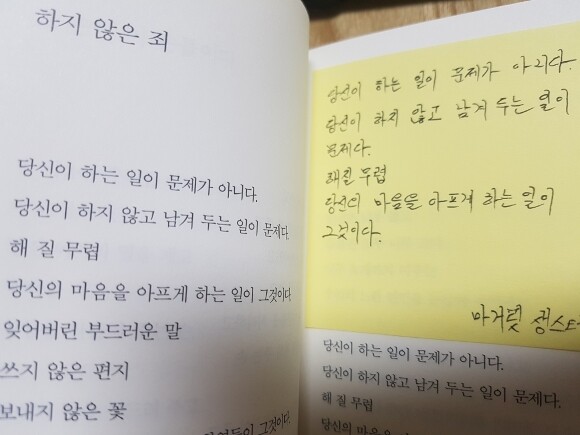 하지 않은 죄
당신이 하는 일이 문제가 아니다.
당신이 하지 않고 남겨 두는 일이 문제다.
해 질 무렵
당신의 마음을 아프게 하는 일이 그것이다
잊어버린 부드러운 말
쓰지 않은 편지
보내지 않은 꽃
그것이다.
당신이 하는 일이 문제가 아니다.
당신이 하지 않고 남겨 두는 일이
문제다.
해질 무렵
당신의 마음을 아프게 하는 일이
그것이다.
마거릿 생스터
당신이 하는 일이 문제가 아니다.
당신이 하지 않고 남겨 두는 일이 문제다.
해 질 무렵
당신의 마음을 아프게 하는